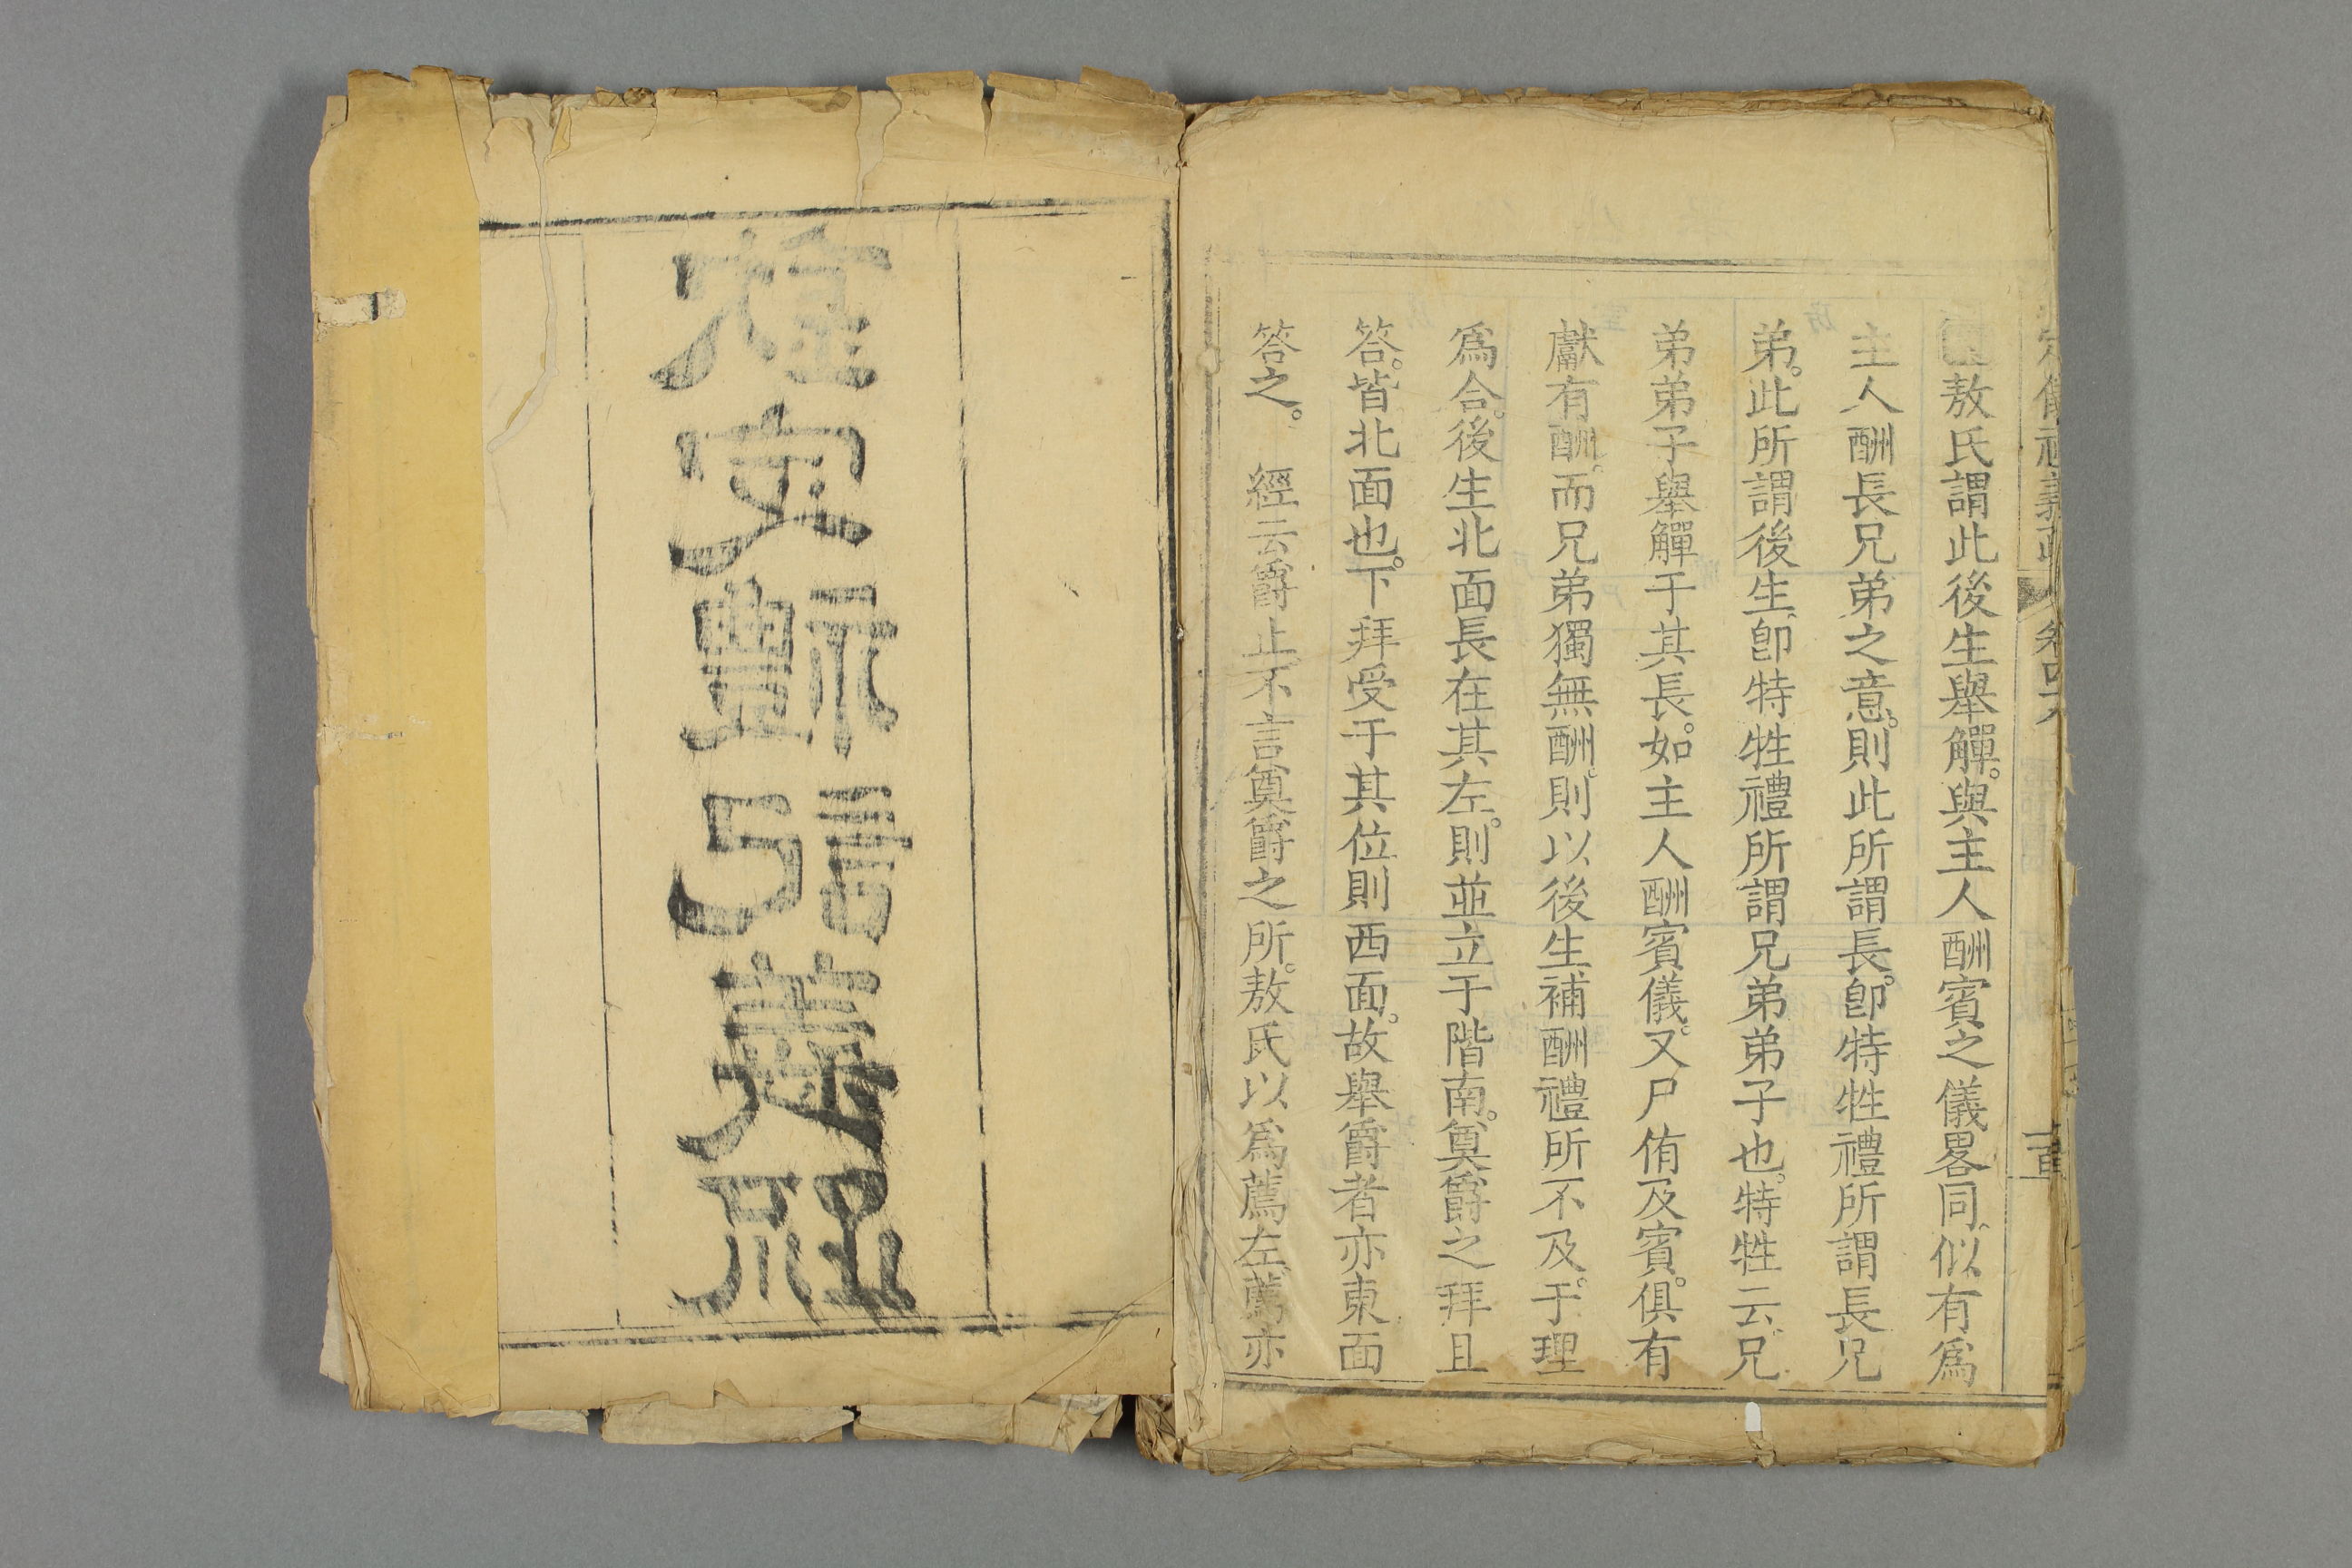 定儀禮義疏 卷四十
敖氏謂此後生舉觶。與主人酬賓之儀畧同、似有爲
主人酬長兄弟之意。則此所謂長。卽特牲禮所謂長兄
弟。此所謂後生、卽特牲禮所謂兄弟弟子也。特牲云、兄
弟弟子舉觶于其長。如主人酬賓儀。又尸侑及賓。俱有
獻有酬。而兄弟獨無酬。則以後生補酬禮所不及。于理
爲合。後生北面長在其左。則並立于階南。奠爵之拜且
答。皆北面也。下拜受于其位則西面。故舉爵者亦東面
答之。 經云爵止、不言奠爵之所。敖氏以爲薦左、薦亦
欽定禮記義疏